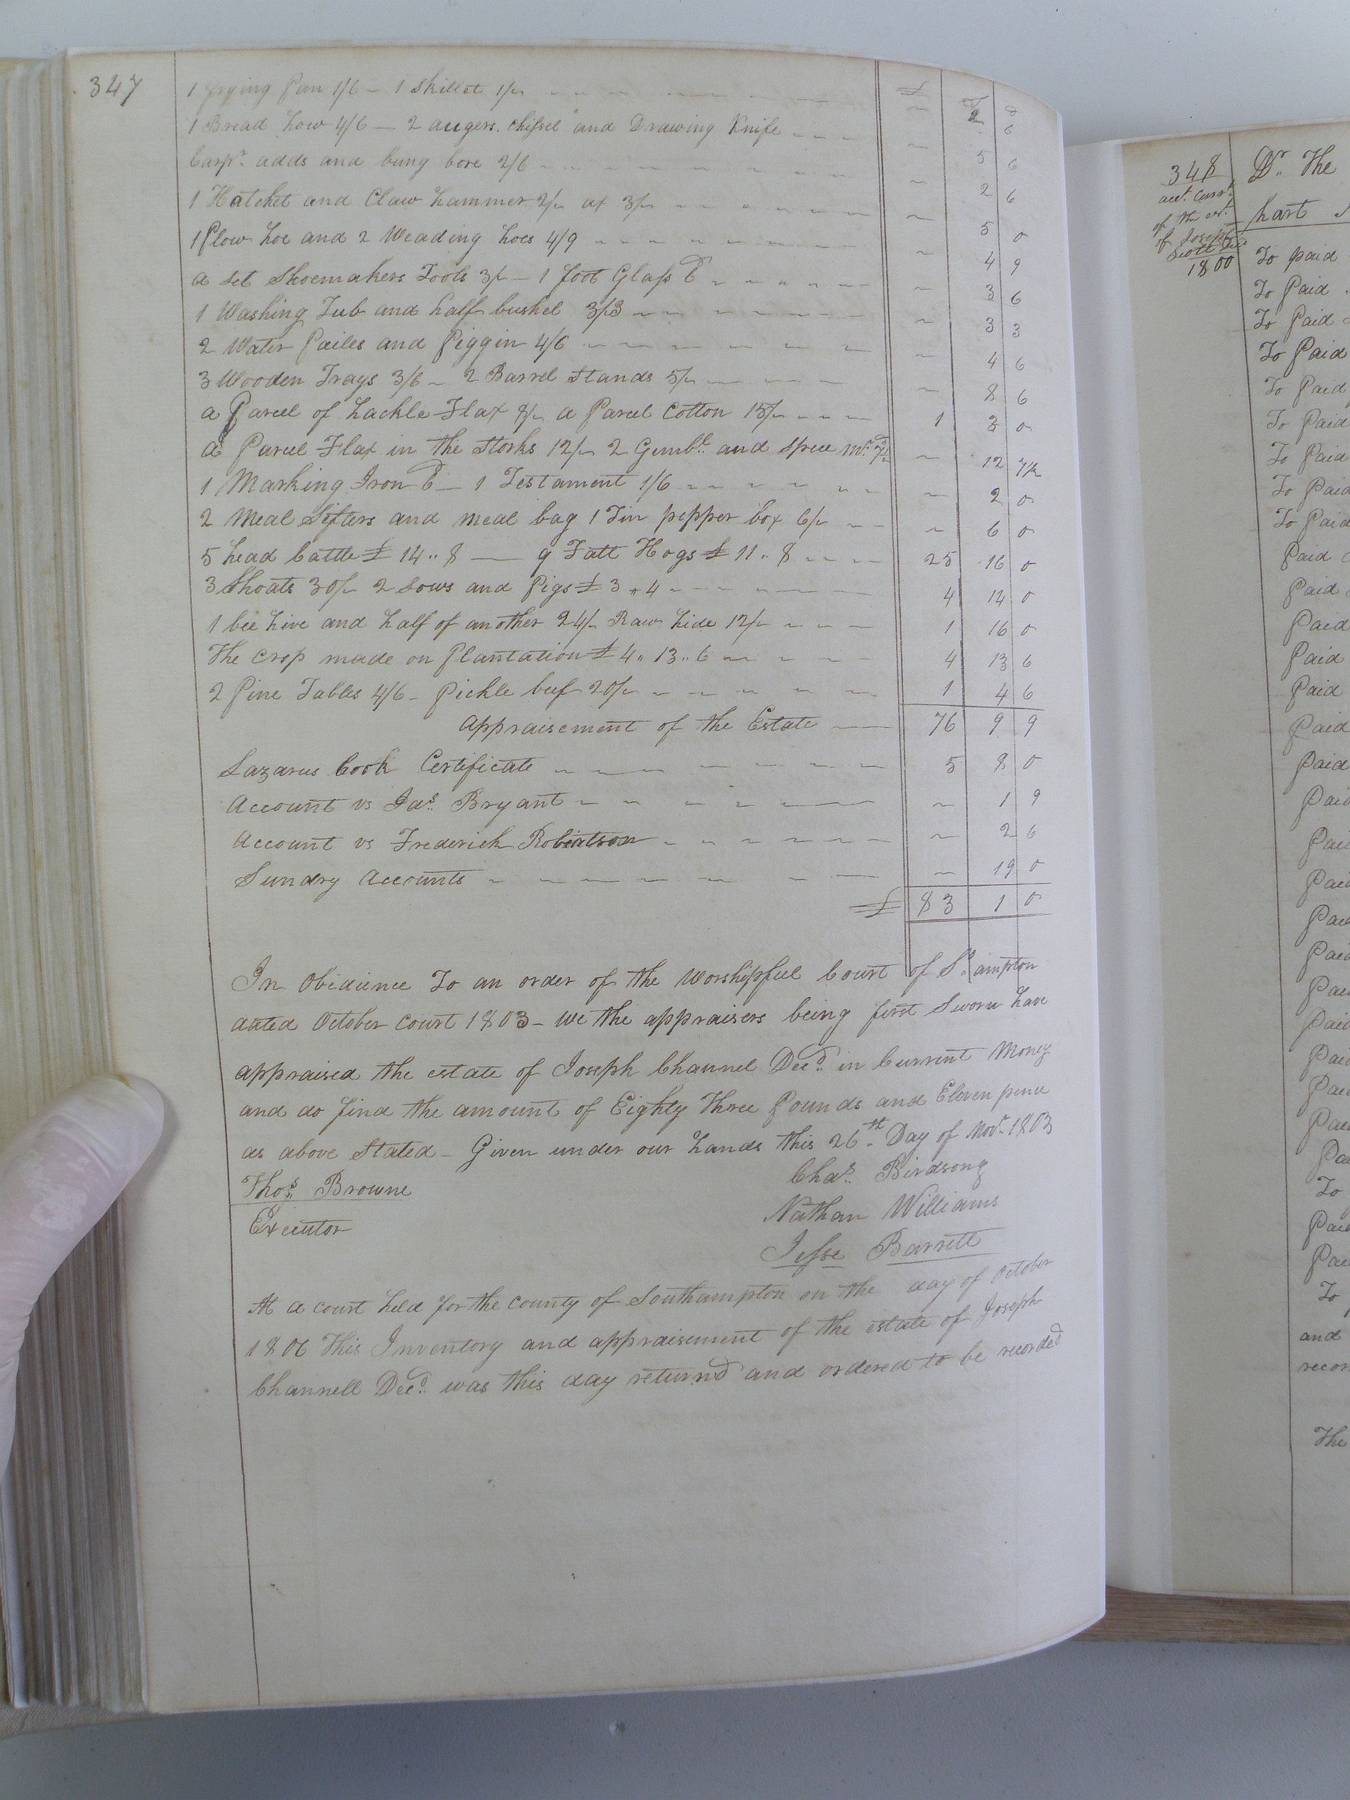 347
£ S d
1 frying Pan 1/6 — 1 Skillet 1/- 2 6
1 Broad how 4/6 — 2 augers. Chissel and Drawing Knife 5 6
Carpr. adds and bung bore 2/6 2 6
1 Hatchet and Claw hammer 2/- ax 3/- 5 0
1 Plow hoe and 2 Weading hoes 4/9 4 9
a set Shoemakers Tools 3/- — 1 foot Glass 3 6
1 Washing Tub and half bushel 3/3 3 3
2 Water Pailes and Piggin 4/6 4 6
3 Wooden Trays 3/6 — 2 Barrel Stands 5/- 8 6
a Parcel of hackle Flax 8/- a Parcel Cotton 15/- 1 3 0
a Parcel Flax in the Storks 12/- 2 Gimbl. and 12 7½
1 Marking Iron — 1 Testament 1/6 2 0
2 Meal Siftars and meal bag 1 Tin pepper box 6/- 6 0
5 head Cattle £ 14.. 8 — 9 Fatt Hogs £ 11.. 8 25 16 0
3 Shoats 30/- 2 Sows and Pigs £ 3 .. 4 4 14 0
1 bee hive and half of another 24/- Raw hide 12/- 1 16 0
The Crop made on Plantation £ 4.. 13.. 6 4 13 6
2 Pine Tables 4/6 — Pickle beef 20/- 1 4 6
appraisement of the Estate 76 9 9
Lazarus Cook Certificate 5 8 0
Account vs Jas. Bryant 1 9
Account vs Frederick Robertson 2 6
Sundry Accounts 19 0
£ 83 1 0
In Obidience To an order of the Worshipful Court of So.ampton
dated October Court 1803 — We the appraisers being first Sworn have
appraised the estate of Joseph Channel Decd. in Current Money
and do find the amount of Eighty Three Pounds and Eleven pence
as above Stated — Given under our hands this 26th. Day of Novr. 1803
Chas. Birdsong
Thos. Browne
Nathan Williams
Executor
Jesse Barrett
At a court held for the county of Southampton on the day of October
1806 This Inventory and appraisement of the estate of Joseph
Channell Decd. was this day returnd and ordered to be recorded
348
acct. Currt.
of the
of Joseph
1800
Dr. The
part
To paid
To Paid
To Paid
To Paid
To Paid
To Paid
To Paid
To Paid
To Paid
Paid
Paid
Paid
Paid
Paid
Paid
Paid
Paid
To
Paid
To
and
recor
The